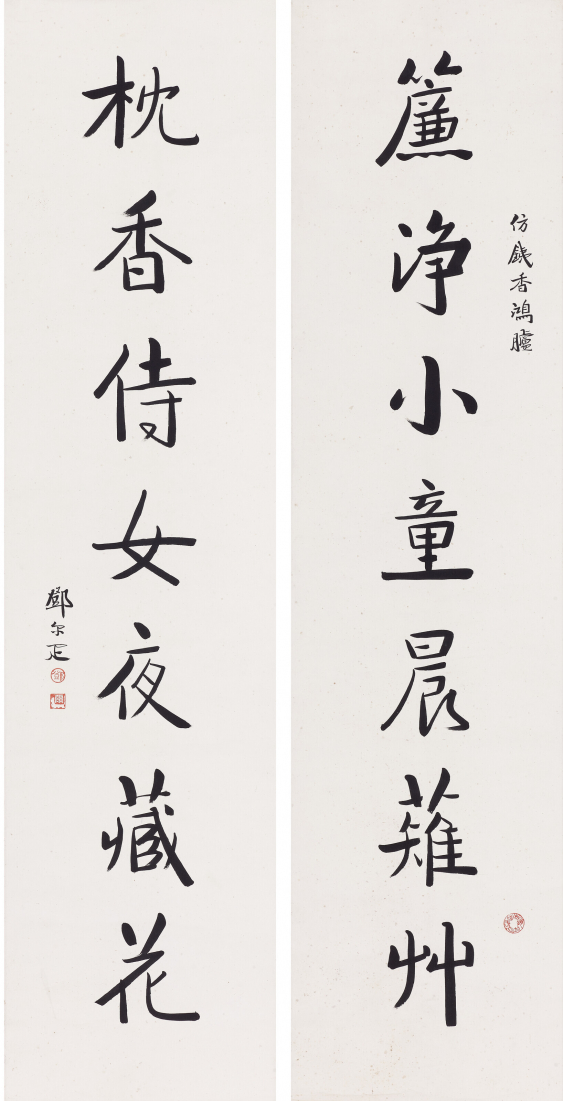 簾淨小童晨薙艸
仿錢香鴻臚
枕香侍女夜藏花
鄧尔疋